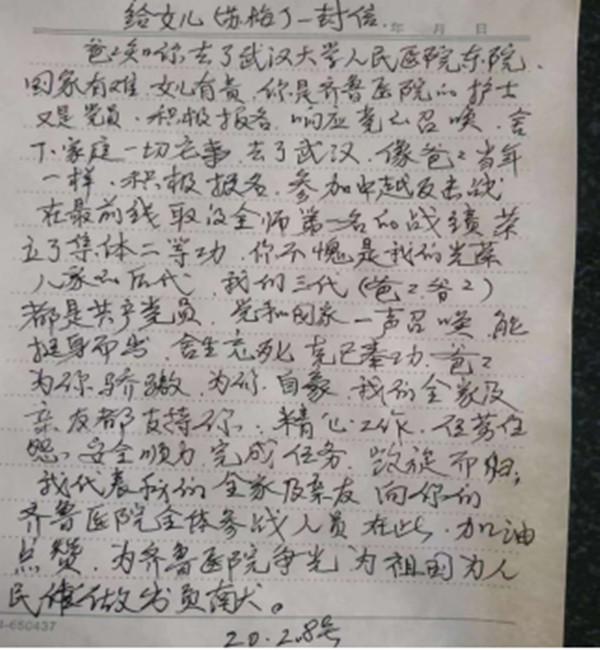 给女儿(苏梅)一封信
年 月 日
爸爸知你去了武汉大学人民医院东院,
国家有难 女儿有责,你是齐鲁医院的护士
又是党员,积极报名,响应党的召唤,舍
下家庭一切 去了武汉,像爸爸当年
一样,积极报名,参加中越反击战
在最前线取得全师第一名的战绩 荣
立了集体二等功,你不愧是我们光荣
人家的后代,我们三代(爸爸 爷爷)
都是共产党员,党和国家一声召唤,能
挺身而出,舍生忘死,克己奉功,爸爸
为你骄傲,为你自豪,我们全家及
亲友都支持你,精心工作,任劳任
怨,安全顺利完成任务,凯旋而归,
我代表我们全家及亲友 向你们
齐鲁医院全体参战人员 在此,加油
点赞,为齐鲁医院争光 为祖国为人
民做出贡献。
-650437
20.2.8号